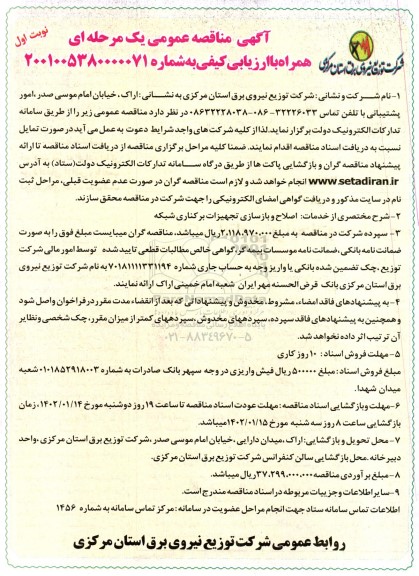 نوبت اول
آگهی مناقصه عمومی یک مرحله ای
همراه با ارزیابی کیفی به شماره ۲۰۰۱۰۰۵۳۸۰۰۰۰۰۷۱
شرکت توزیع نیروی برق استان مرکزی
۱- نام شرکت و نشانی : شرکت توزیع نیروی برق استان مرکزی به نشانی : اراک ، خیابان امام موسی صدر ، امور
پشتیبانی با تلفن تماس ۳۲۲۲۶۰۳۳-۰۸۶ -۰۸۶۳۲۲۲۸۰۳۸ در نظر دارد مناقصه عمومی زیر را از طریق سامانه
تدارکات الکترونیک دولت برگزار نماید. لذا از کلیه شرکت های واجد شرایط دعوت به عمل می آید در صورت تمایل
نسبت به دریافت اسناد مناقصه اقدام نمایند. ضمنا کلیه مراحل برگزاری مناقصه از دریافت اسناد مناقصه تا ارائه
پیشنهاد مناقصه گران و بازگشایی پاکت ها از طریق درگاه سامانه تدارکات الکترونیک دولت (ستاد) به آدرس
www.setadiran.ir انجام خواهد شد و لازم است مناقصه گران در صورت عدم عضویت قبلی، مراحل ثبت
نام در سایت مذکور و دریافت گواهی امضای الکترونیکی را جهت شرکت در مناقصه محقق سازند.
۲- شرح مختصری از خدمات: اصلاح و بازسازی تجهیزات برکناری شبکه
۳- سپرده شرکت در مناقصه به مبلغ ۲،۱۱۸،۹۷۰،۰۰۰ ریال میباشد، مناقصه گران میبایست مبلغ فوق را به صورت
ضمانت نامه بانکی ، ضمانت نامه موسسات بیمه گر، گواهی خالص مطالبات قطعی تایید شده توسط امور مالی شرکت
توزیع ، چک تضمین شده بانکی یا واریز وجه به حساب جاری شماره ۷۰۱۸۱۱۱۱۳۳۱۱۹۴ به نام شرکت توزیع نیروی
برق استان مرکزی بانک قرض الحسنه مهر ایران شعبه امام خمینی اراک ارائه نمایند.
۴- به پیشنهادهای فاقد امضاء ، مشروط، مخدوش و پیشنهاداتی که بعد از انقضاء مدت مقرر در فراخوان واصل شود
و همچنین به پیشنهادهای فاقد سپرده ، سپردههای مخدوش ، سپردههای کمتر از میزان مقرر، چک شخصی و نظایر
آن ترتیب اثر داده نخواهد شد.
۰۲۱-۸۸۳۴۹۶۷۰-۵
۵- مهلت فروش اسناد: ۱۰ روز کاری
مبلغ فروش اسناد : مبلغ ۵۰۰۰۰۰ ریال فیش واریزی در وجه سپهر بانک صادرات به شماره ۰۱۰۱۸۵۲۹۱۸۰۰۳ شعبه
میدان شهدا.
۶- مهلت و بازگشایی اسناد مناقصه : مهلت عودت اسناد مناقصه تا ساعت ۱۹ روز دوشنبه مورخ ۱۴۰۲/۰۱/۱۴ ، زمان
بازگشایی ساعت ۸ روز سه شنبه مورخ ۱۴۰۲/۰۱/۱۵ میباشد.
۷- محل تحویل و بازگشایی : اراک ، میدان دارایی ، خیابان امام موسی صدر ، شرکت توزیع برق استان مرکزی ، واحد
دبیرخانه . محل بازگشایی سالن کنفرانس شرکت توزیع برق استان مرکزی.
۸- مبلغ برآوردی مناقصه ۳۷،۲۹۹،۰۰۰،۰۰۰ ریال میباشد.
۹- سایر اطلاعات و جزییات مربوطه در اسناد مناقصه مندرج است.
اطلاعات تماس سامانه ستاد جهت انجام مراحل عضویت در سامانه : مرکز تماس سامانه به شماره ۱۴۵۶
روابط عمومی شرکت توزیع نیروی برق استان مرکزی